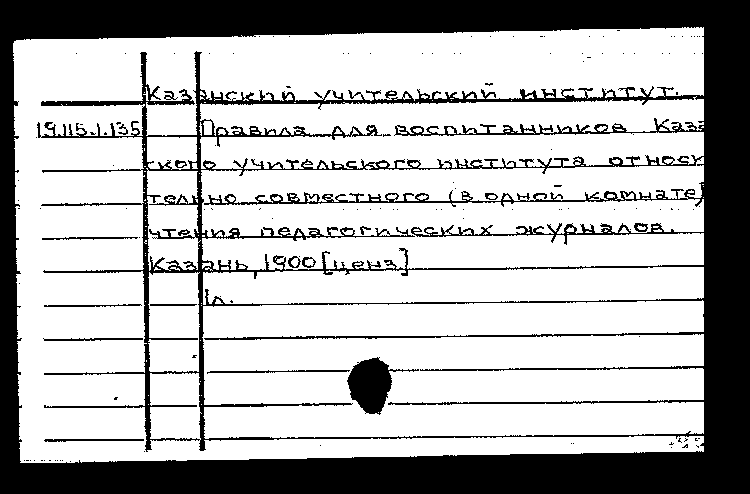 Казанский учительский институт.
19.115.1.135 Правила для воспитанников Каза
ского учительского института относи
тельно совместного (в одной комнате)
чтения педагогических журналов.
Казань, 1900 [ценз.]
1л.